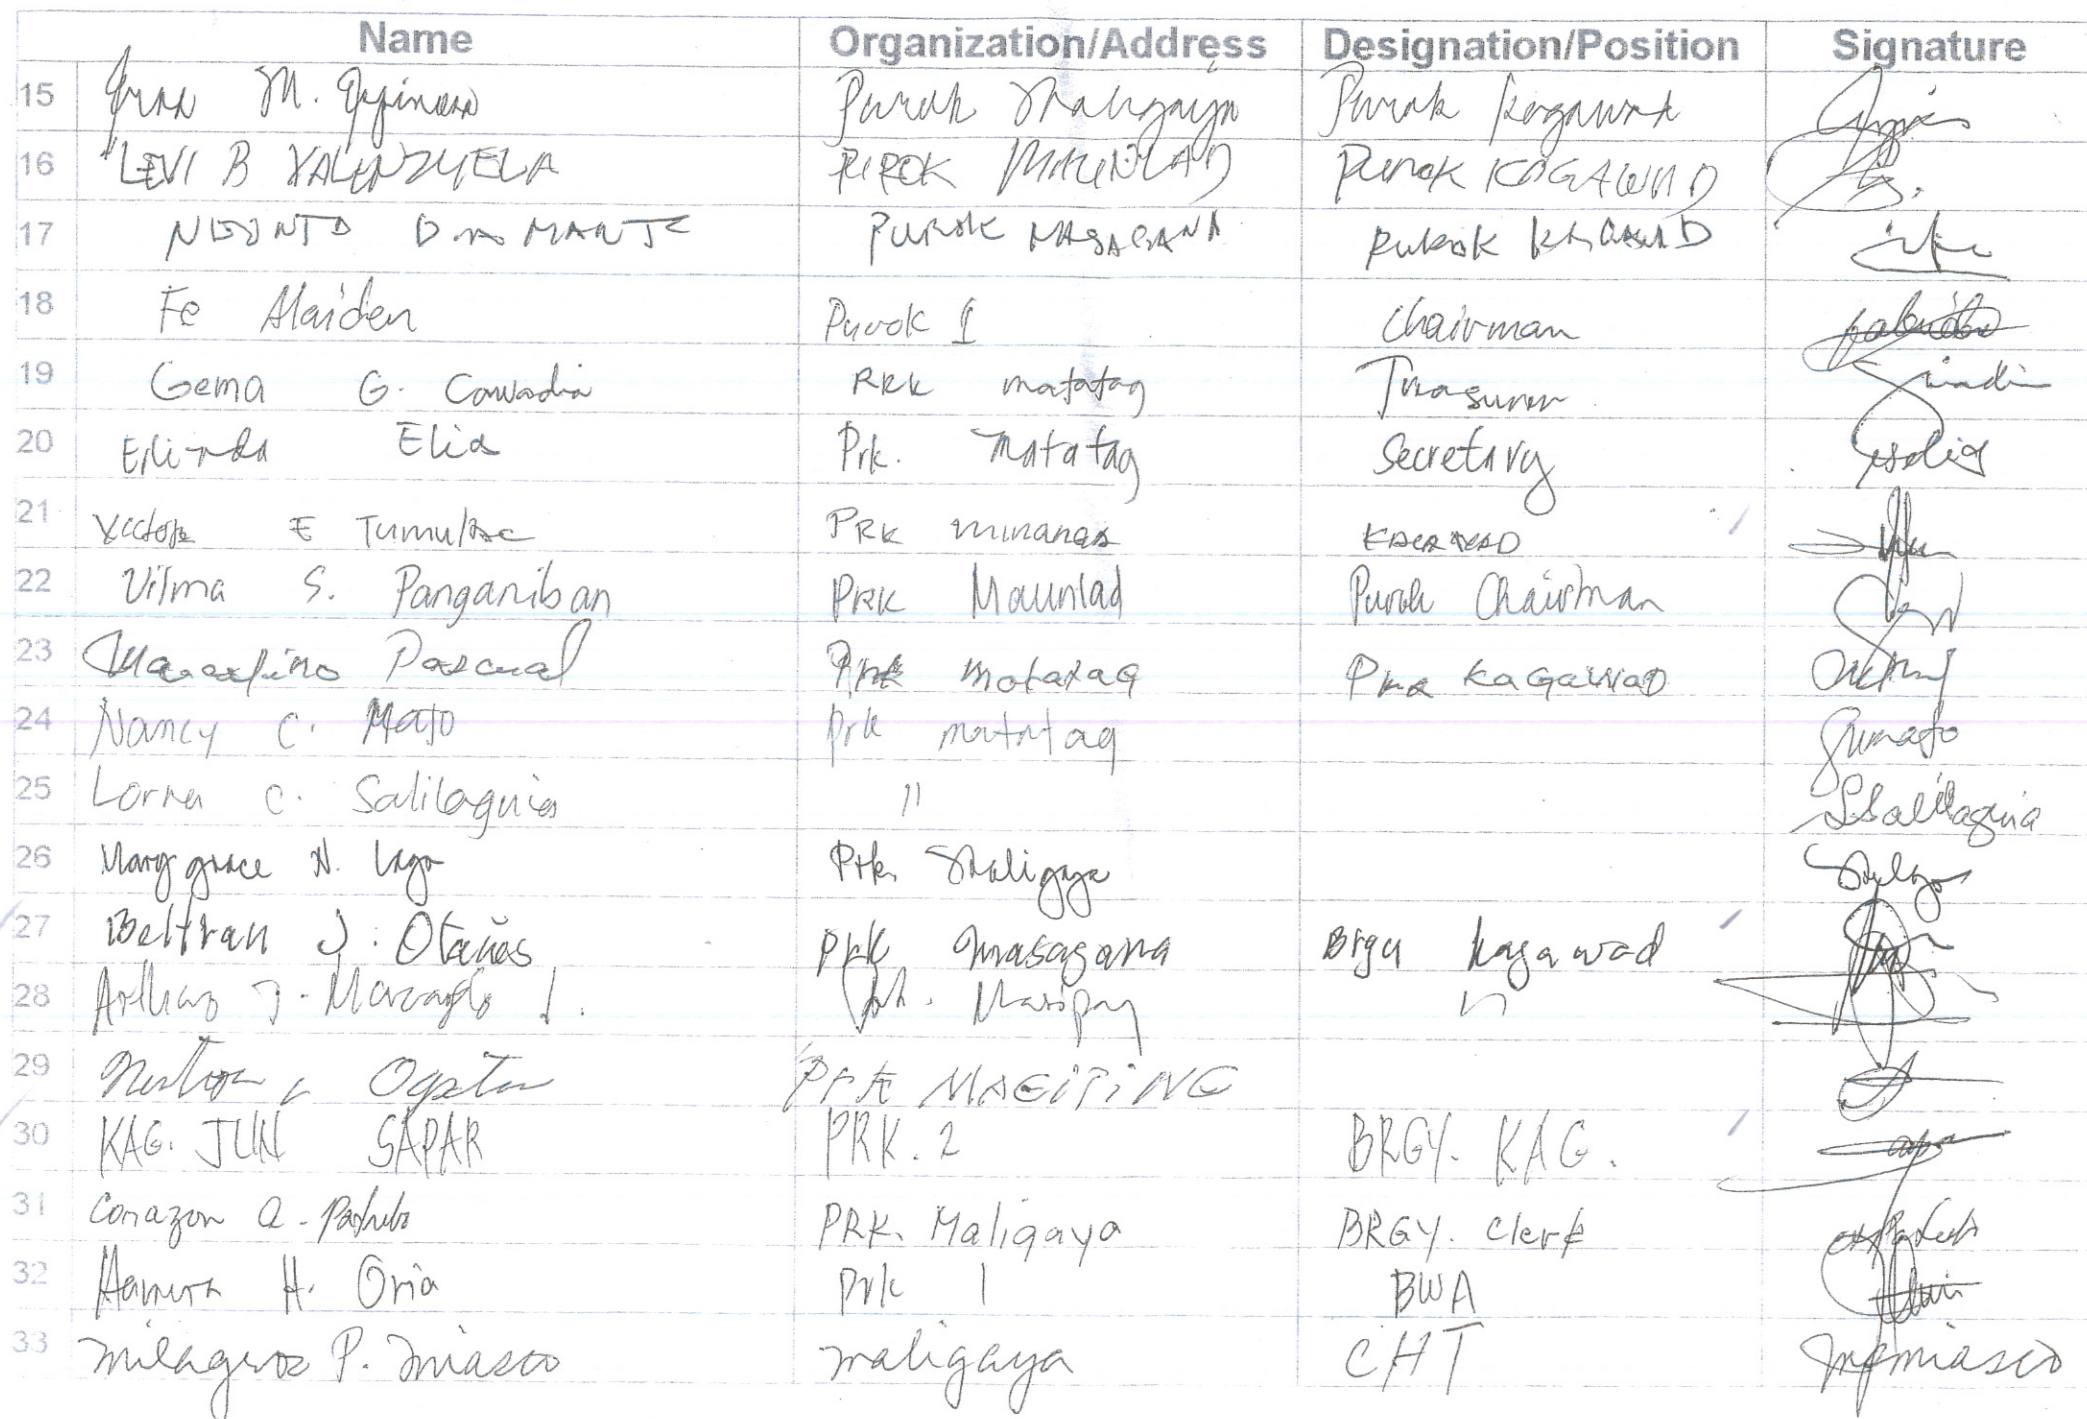 Name Organization/Address Designation/Position Signature
15 M. Espinosa Purok Maligaya Purok Kagawad
16 LEVI B VALENZUELA PUROK MAUNLAD PUROK KAGAWAD
17 DIAMANTE PUROK MASAGANA PUROK KAGAWAD
18 Fe Alaiden Purok 1 Chairman
19 Gema G. PRK matatag Treasurer
20 Erlinda Elia Prk. matatag Secretary
21 Victor E PRK KAGAWAD
22 Vilma S. Panganiban PRK Maunlad Purok Chairman
23 Marcelino Pascual Prk matatag PRK KAGAWAD
24 Nancy C. Mato Prk matatag
25 Lorna C. Salilaguia "
26 Mary grace N. Lago Prk. Maligaya
27 Beltran J. Otañas Prk masagana Brgy Kagawad
28 J. "
29 PRK MAGITING
30 KAG. JUN SAPAR PRK. 2 BRGY. KAG.
31 Corazon A. PRK. Maligaya BRGY. Clerk
32 H. Oria Prk 1 BWA
33 milagros P. miasco maligaya CHT mpmiasco